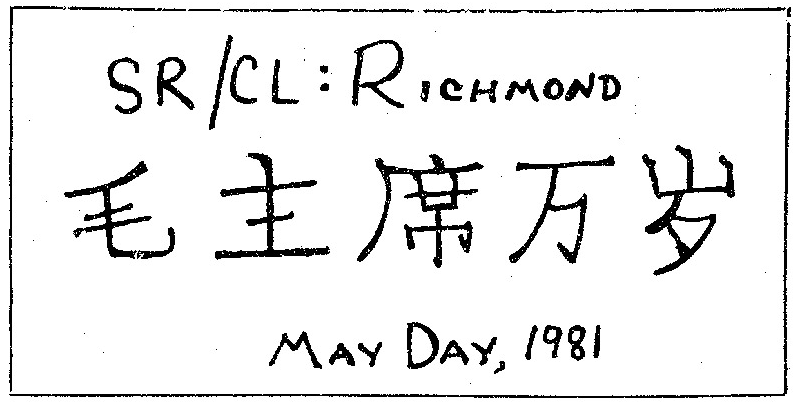 SR/CL: RICHMOND
毛主席万岁
MAY DAY, 1981